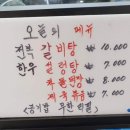 오늘의 메뉴
전복 갈비탕 ₩ 10.000
한우 설렁탕 ₩ 7.000
₩ 8.000
제육볶음 ₩ 7.000
(공기밥 무한리필)